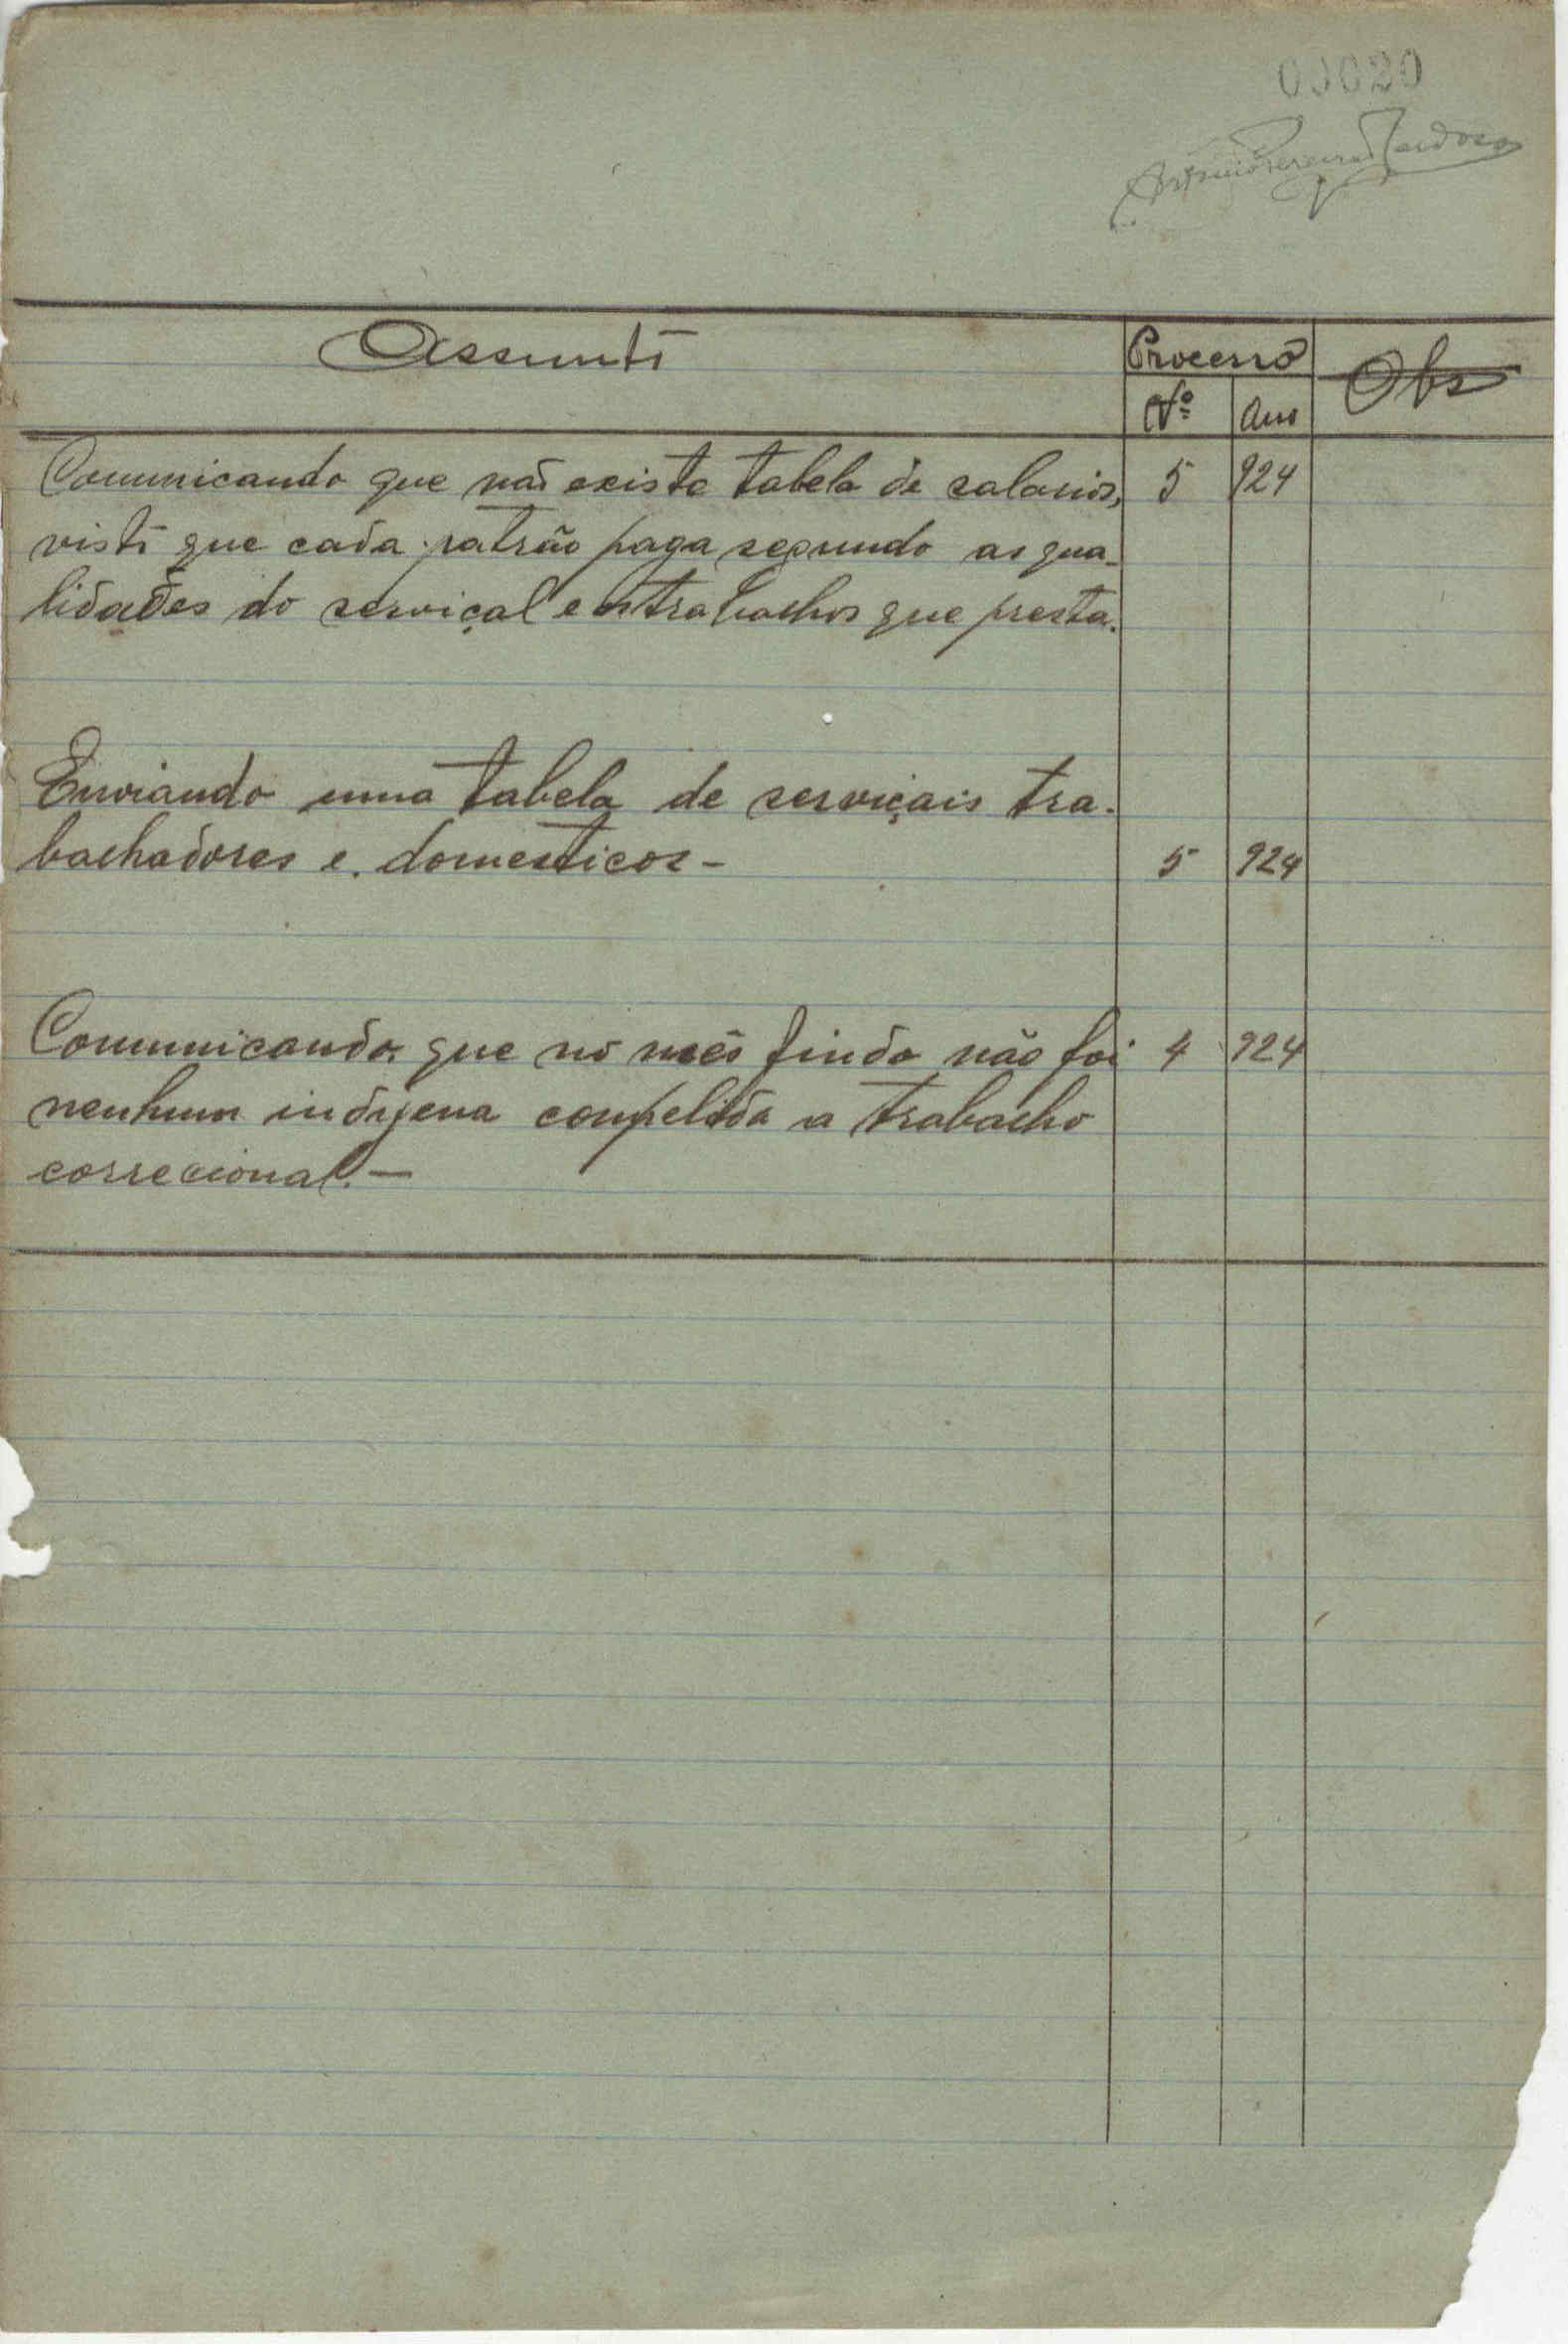 00020
Assunto
Processo
Obs
Nº
Ano
Comunicando que não existe tabela de salarios,
5
924
visto que cada patrão paga segundo as qua-
lidades do serviçal e os trabalhos que presta.
Enviando uma tabela de serviçais tra-
balhadores e domesticos -
5
924
Comunicando que no mês findo não foi
4
924
nenhum indigena compelido a trabalho
correcional. -